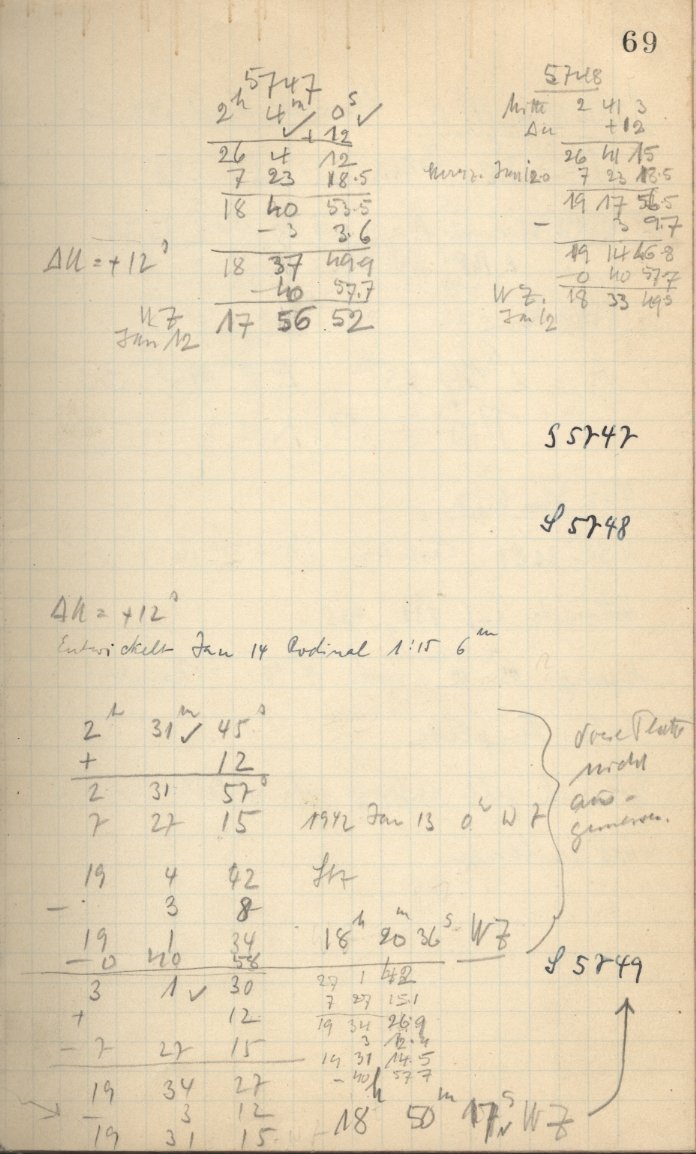 69
5747
2h 4m✓ 0s✓
✓ + 12
26 4 12
7 23 18.5
18 40 53.5
-3 3.6
ΔU = +12s 18 37 49.9
-40 57.7
WZ 17 56 52
Jan 12
5748
Mitte 2 41 3
Δu +12
26 41 15
Jan 12.0 7 23 18.5
19 17 56.5
- 3 9.7
19 14 46.8
-0 40 57.7
WZ. 18 33 49
Jan 12
S 5747
S 5748
ΔU = +12s
Entwickelt Jan 14 Rodinal 1:15 6m
2h 31m✓ 45s
+ 12
2 31 57s
7 27 15 1942 Jan 13 0h WZ
19 4 42 Stz
- 3 8
19 1 34 18h 20m 36s WZ
-0 40 58
diese Platte
nicht
aus-
gemessen.
S 5749
3 1✓ 30
+ 12
- 7 27 15
19 34 27
- 3 12
19 31 15
27 1 42
7 27 15.1
19 34 26.9
3 12.4
19 31 14.5
- 40 57.7
18h 50m 17s WZ